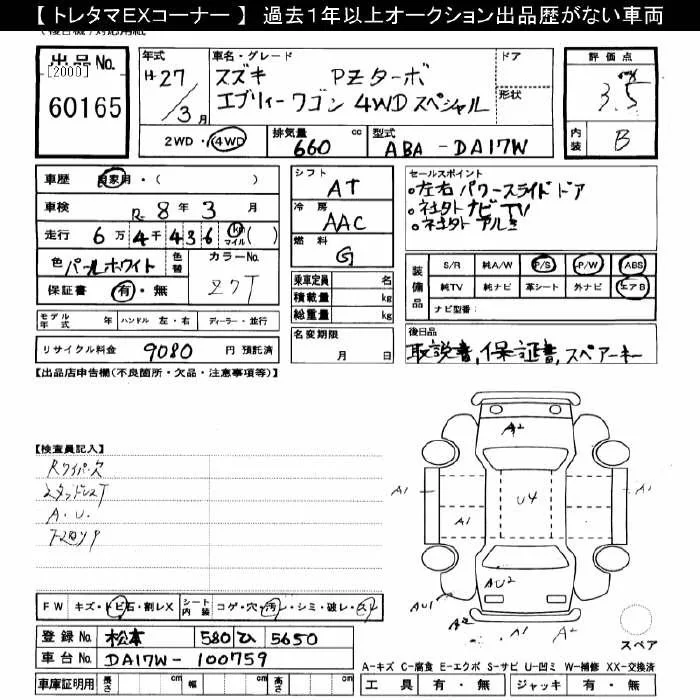 【トレタマEXコーナー】 過去１年以上オークション出品歴がない車両
出品No.
[2000]
60165
年式
H27/3月
車名・グレード
スズキ PZターボ
エブリィーワゴン 4WDスペシャル
ドア
形状
評価点
3.5
内装
B
2WD・4WD
排気量 660 cc
型式 ABA-DA17W
車歴 自家用・( )
車検 R- 8年 3月
走行 6万4千436 km マイル ( )
色 パールホワイト
色替
カラーNo. Z7T
保証書 有・無
モデル年式 年 ハンドル 左・右 ディーラー・並行
リサイクル料金 9080 円 預託済
シフト AT
冷房 AAC
燃料 G
乗車定員 名
積載量 kg
総重量 kg
名変期限
月 日
セールスポイント
○左右パワースライドドア
○社外ナビTV
○社外アルミ
装備品
S/R 純A/W P/S P/W ABS
純TV 純ナビ 革シート 外ナビ エアB
ナビ型番：
後日品
取説書,保証書,スペアーキー
【出品店申告欄(不良箇所・欠品・注意事項等)】
【検査員記入】
Rワイパー欠
スタッドレスT
A.U.
A2
A1
A1
U4
A1
AU2
AU1
A2
A1
A2
スペア
FW キズ・トビ石・割レX
シート内装 コゲ・穴・汚レ・シミ・破レ・スレ
登録No. 松本 580 ひ 5650
車台No. DA17W-100759
車庫証明用 長さ cm 幅 cm 高さ cm
A-キズ C-腐食 E-エクボ S-サビ U-凹ミ W-補修 XX-交換済
工具 有・無 ジャッキ 有・無